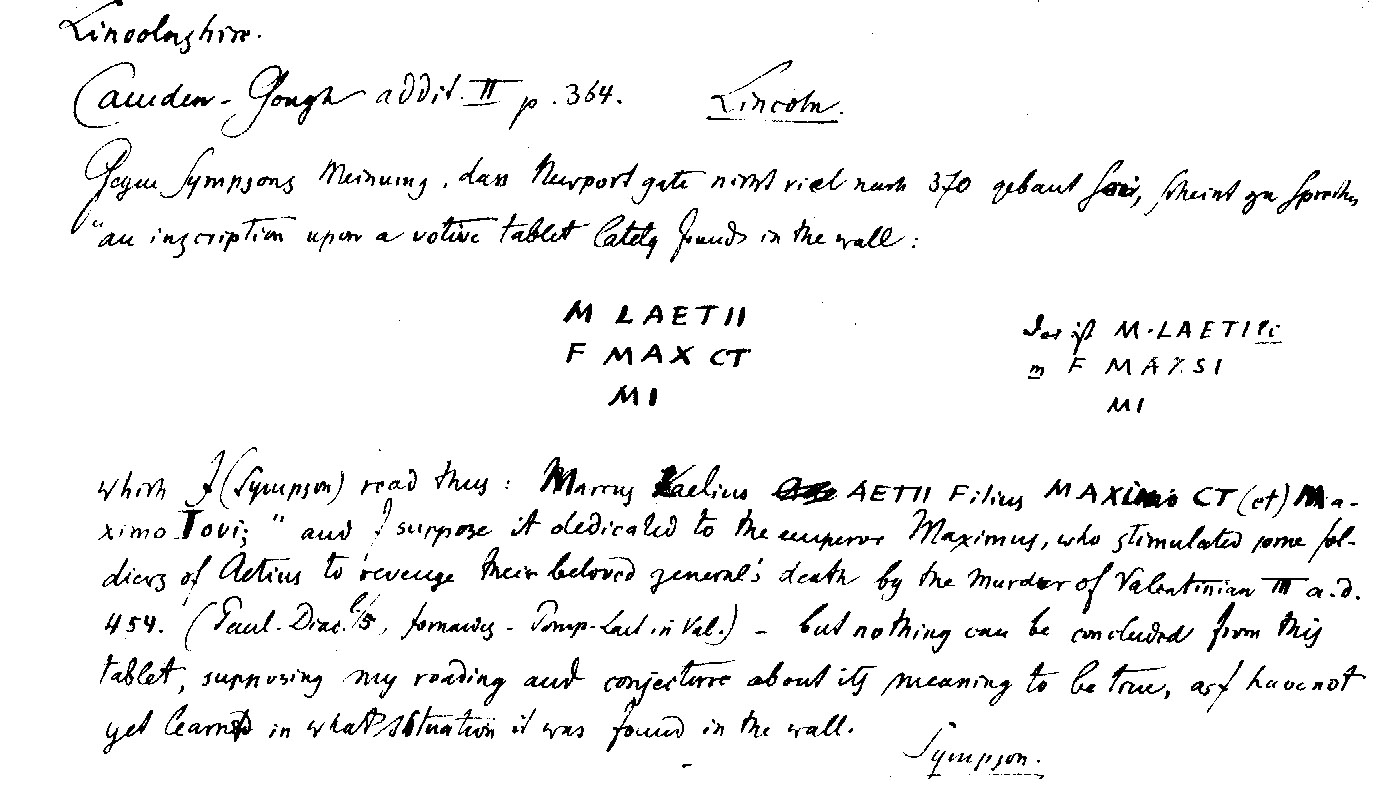 Lincolnshire.
Camden-Gough addit. II p. 364. Lincoln.
Gegen Sympsons Meinung, dass Newport gate nicht viel nach 370 gebaut sei, scheint zu sprechen
"an inscription upon a votive tablet lately found in the wall:
M LAETII
F MAX CT
MI
Das ist M·LAETIli
m F MAX.SI
MI
which I (Sympson) read thus: Marcus Laelius AETII Filius MAXimo CT (et) Ma-
ximo Jovi;" and I suppose it dedicated to the emperor Maximus, who stimulated some sol-
diers of Aetius to revenge their beloved general's death by the murder of Valentinian III a.d.
454. (Paul. Diac. l/5, Jornandes - Pomp-Laet. in Val.) - but nothing can be concluded from this
tablet, supposing my reading and conjecture about its meaning to be true, as I have not
yet learnt in what situation it was found in the wall.
Sympson.